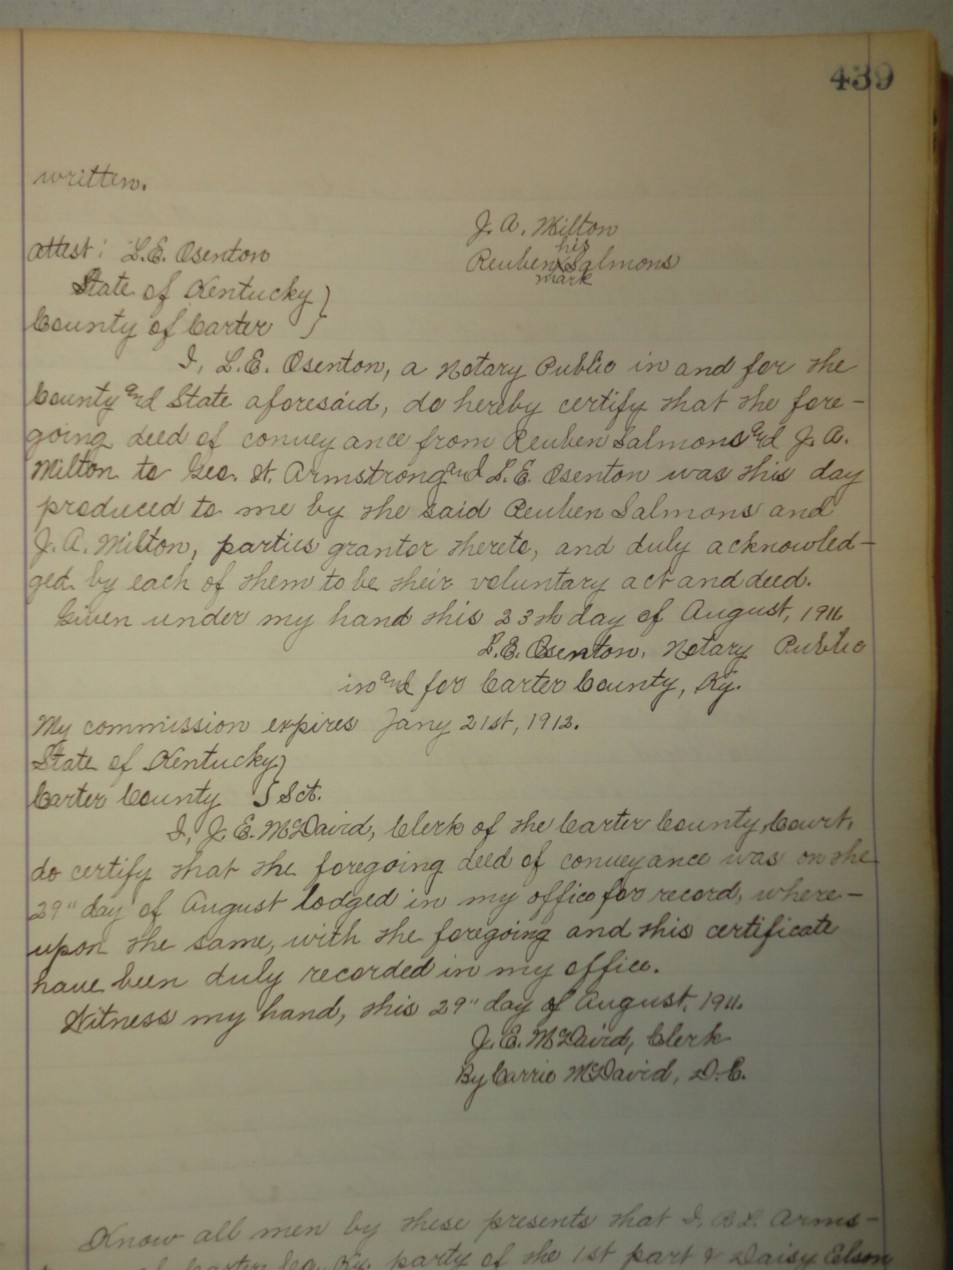 439
written.
J. A. Milton
his
Attest: L.E. Osenton
Reuben X Salmons
mark
State of Kentucky }
County of Carter }
I, L.E. Osenton, a Notary Public in and for the
County and State aforesaid, do hereby certify that the fore-
going deed of conveyance from Reuben Salmons and J. A.
Milton to Geo. W. Armstrong and L.E. Osenton was this day
produced to me by the said Reuben Salmons and
J. A. Milton, parties grantor thereto, and duly acknowled-
ged by each of them to be their voluntary act and deed.
Given under my hand this 23th day of August, 1911.
L.E. Osenton, Notary Public
in and for Carter County, Ky.
My commission expires Jany 21st, 1912.
State of Kentucky }
Carter County } Sct.
I, J. E. McDavid, Clerk of the Carter County Court,
do certify that the foregoing deed of conveyance was on the
29" day of August lodged in my office for record, where-
upon the same, with the foregoing and this certificate
have been duly recorded in my office.
Witness my hand, this 29" day of August, 1911.
J. E. McDavid, Clerk
By Carrie McDavid, D.C.
Know all men by these presents that I, Arms-
of Carter Co. Ky. party of the 1st part & Daisy Elson